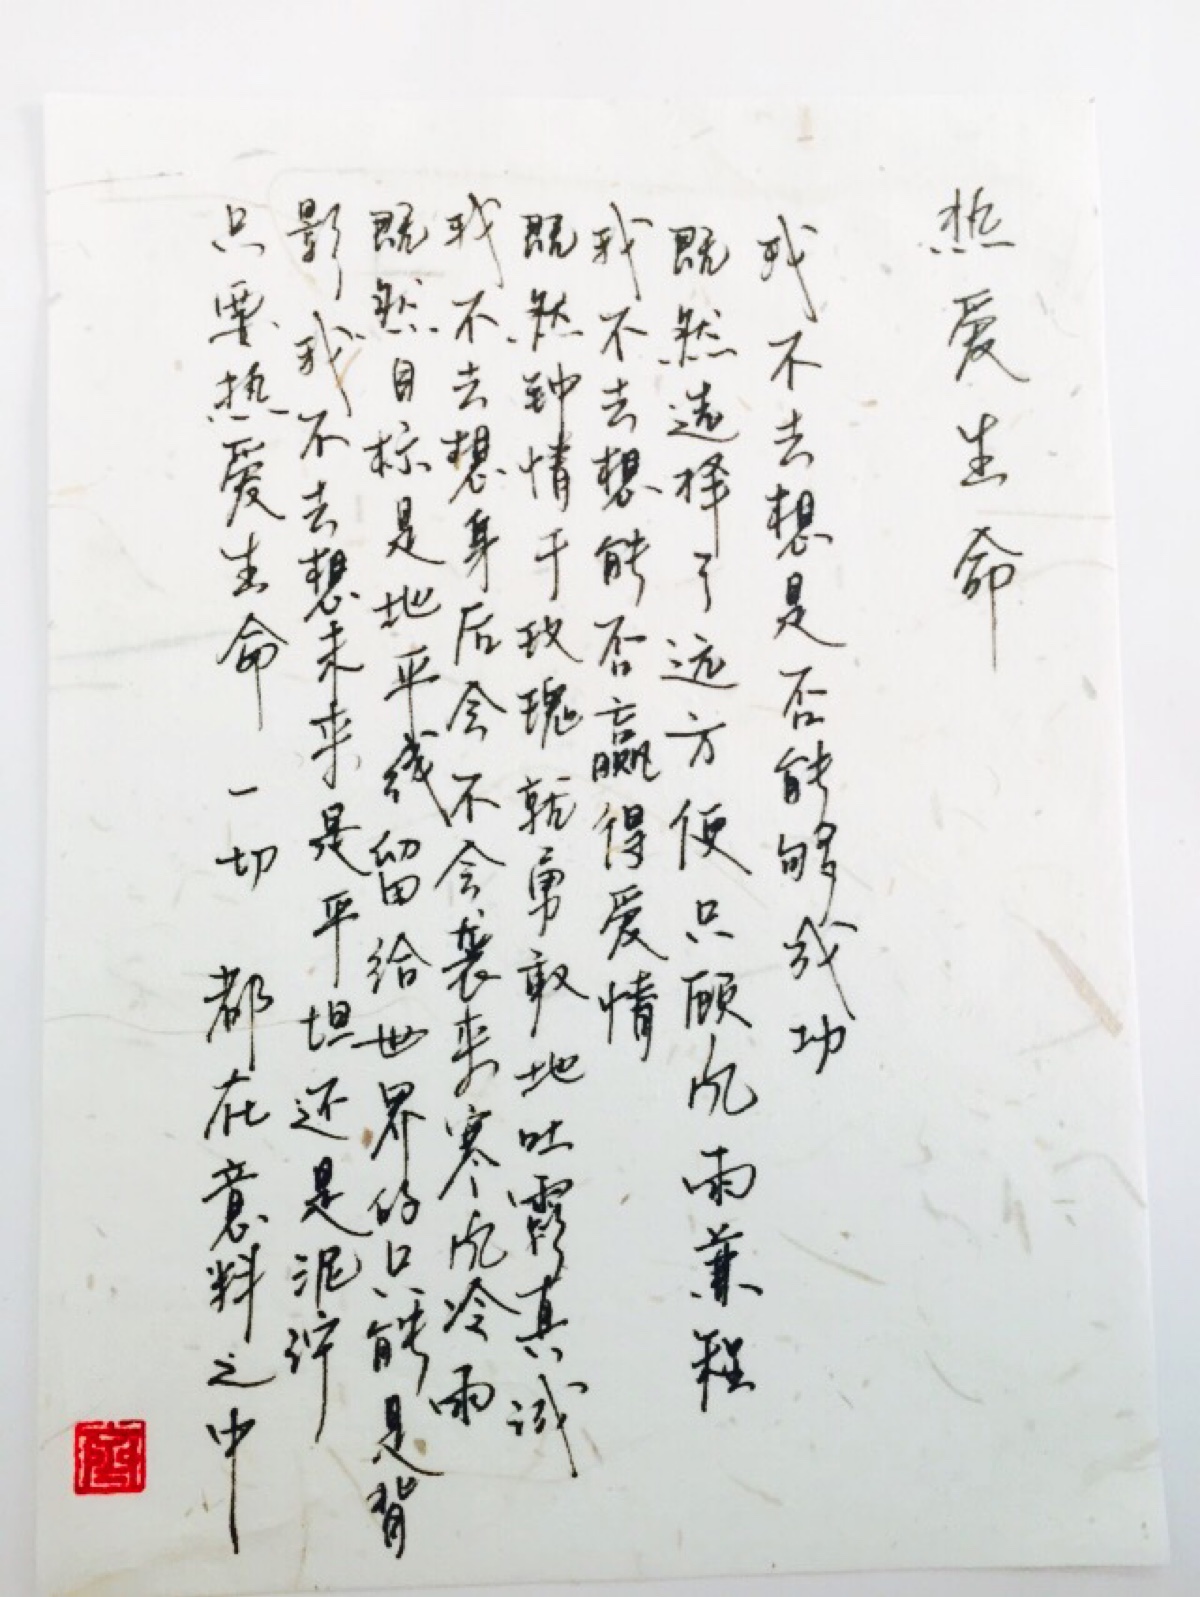 热爱生命
我不去想是否能够成功
既然选择了远方便只顾风雨兼程
我不去想能否赢得爱情
既然钟情于玫瑰就勇敢地吐露真诚
我不去想身后会不会袭来寒风冷雨
既然目标是地平线留给世界的只能是背
影我不去想未来是平坦还是泥泞
只要热爱生命一切都在意料之中